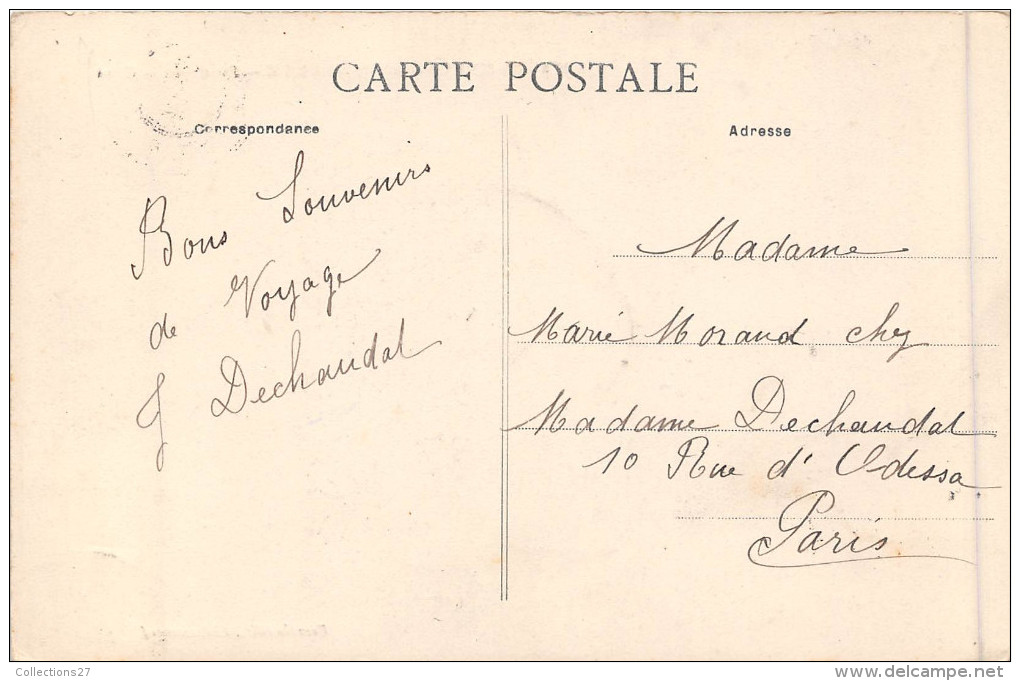 CARTE POSTALE
Correspondance
Adresse
Bons Souvenirs
de Voyage
J Dechaudat
Madame
Marie Morand chez
Madame Dechaudat
10 Rue d'Odessa
Paris
Collections27
www.delcampe.net